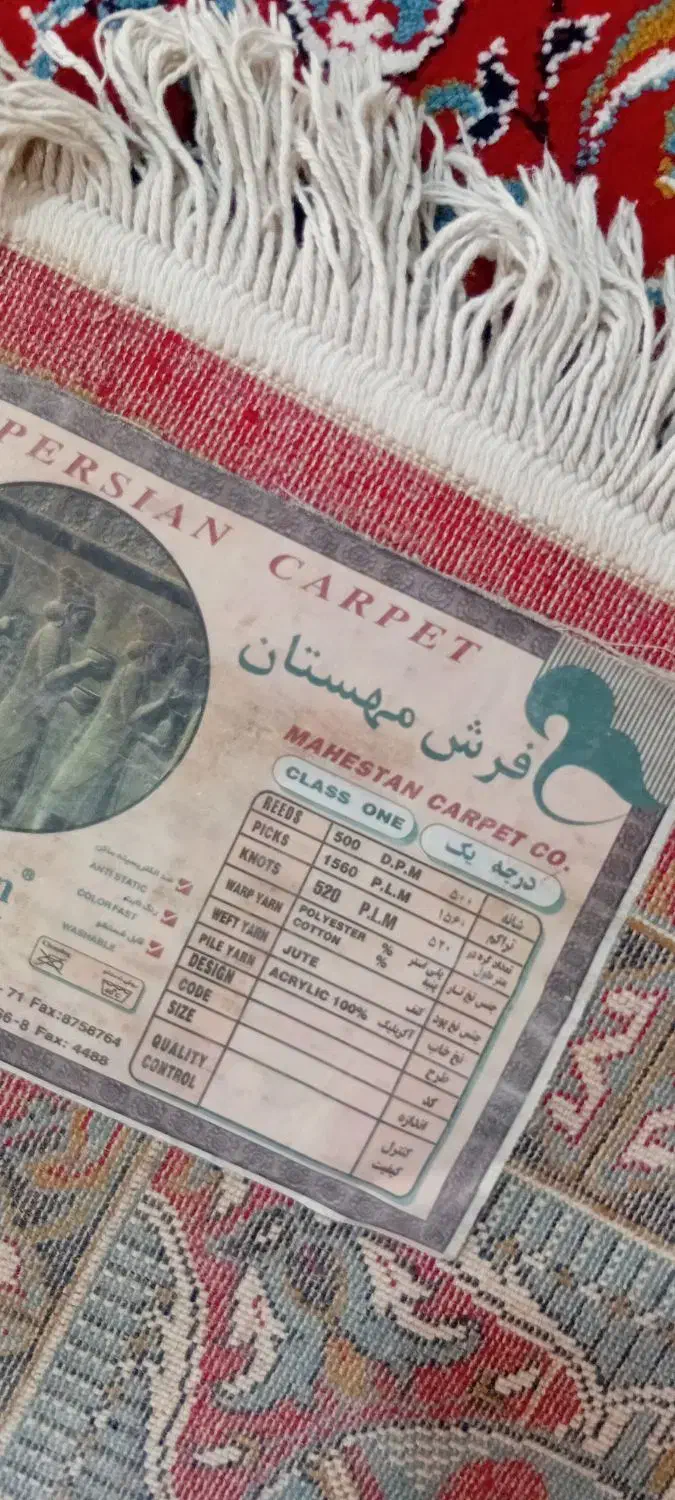 PERSIAN CARPET
فرش مهستان
MAHESTAN CARPET CO.
CLASS ONE درجه یک
REEDS 500 D.P.M ۵۰۰ شانه
PICKS 1560 P.L.M ۱۵۶۰ تراکم
KNOTS 520 P.L.M ۵۲۰ تعداد گره در متر طول
WARP YARN POLYESTER % پلی استر جنس نخ تار
COTTON % پنبه
WEFT YARN JUTE کنف جنس نخ پود
PILE YARN ACRYLIC 100% آکریلیک نخ خاب
DESIGN طرح
CODE کد
SIZE اندازه
QUALITY CONTROL کنترل کیفیت
n ®
ضد الکتریسیته ساکن
ANTI STATIC
COLOR FAST
قابل شستشو
WASHABLE
71 Fax:8758764
66-8 Fax: 4488